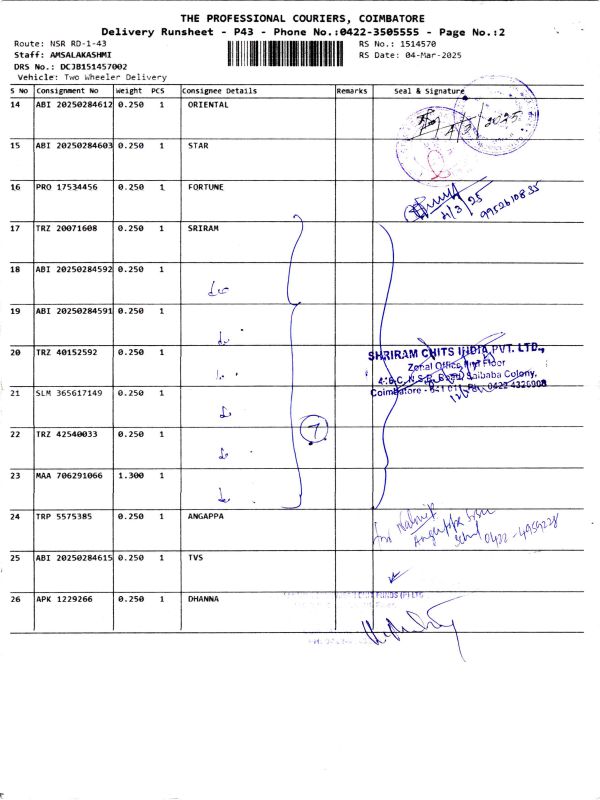 THE PROFESSIONAL COURIERS, COIMBATORE
Delivery Runsheet - P43 - Phone No.:0422-3505555 - Page No.:2
Route: NSR RD-1-43 RS No.: 1514570
Staff: AMSALAKASHMI RS Date: 04-Mar-2025
DRS No.: DCJB151457002
Vehicle: Two Wheeler Delivery
S No Consignment No Weight PCS Consignee Details Remarks Seal & Signature
14 ABI 20250284612 0.250 1 ORIENTAL
4/3/2025
15 ABI 20250284603 0.250 1 STAR
16 PRO 17534456 0.250 1 FORTUNE
4/3/25 9952610835
17 TRZ 20071608 0.250 1 SRIRAM
18 ABI 20250284592 0.250 1
do
19 ABI 20250284591 0.250 1
do
20 TRZ 40152592 0.250 1
SHRIRAM CHITS INDIA PVT. LTD.,
Zonal Office, First Floor
Saibaba Colony,
21 SLM 365617149 0.250 1
Coimbatore - 641 011
do
22 TRZ 42540033 0.250 1
7
do
23 MAA 706291066 1.300 1
do
24 TRP 5575385 0.250 1 ANGAPPA
0422-4959228
25 ABI 20250284615 0.250 1 TVS
26 APK 1229266 0.250 1 DHANNA
FUNDS (P) LTD